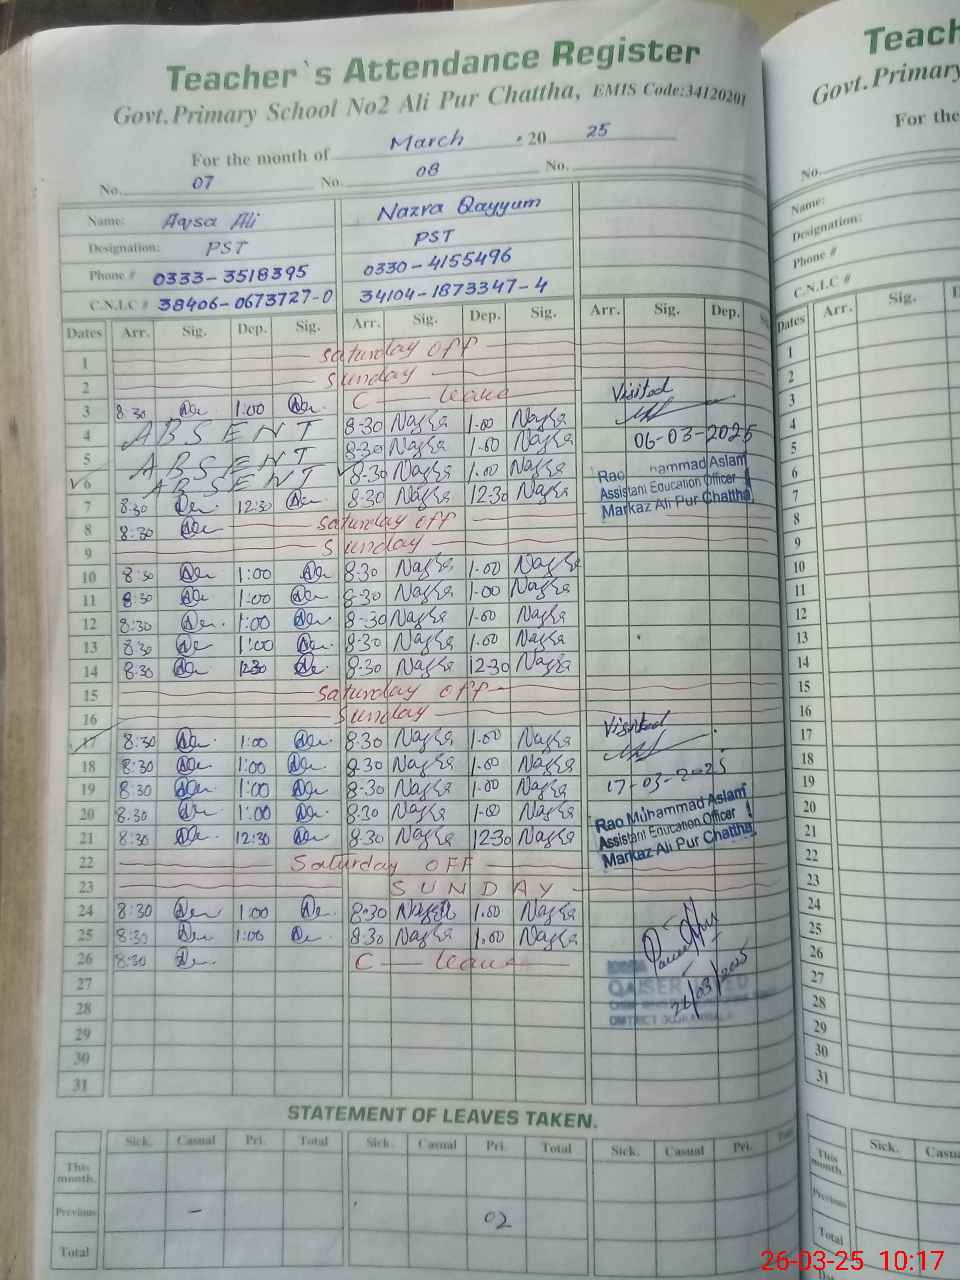 Teacher`s Attendance Register
Govt.Primary School No2 Ali Pur Chattha, EMIS Code:34120201
For the month of March 20 25
No. 07 No. 08 No.
Name: Aqsa Ali Nazra Qayyum
Designation: PST PST
Phone # 0333-3518395 0330-4155496
C.N.I.C # 38406-0673727-0 34104-1873347-4
Dates Arr. Sig. Dep. Sig. Arr. Sig. Dep. Sig. Arr. Sig. Dep.
1 Saturday off
2 Sunday
3 8:30 1:00 C leave
4 ABSENT 8-30 1-00
5 ABSENT 8-30 1-00
6 ABSENT 8-30 1-00
7 8:30 12:30 8-30 12-30
8 8:30 Saturday off
9 Sunday
10 8:30 1:00 8-30 1-00
11 8:30 1:00 8-30 1-00
12 8:30 1:00 8-30 1-00
13 8:30 1:00 8-30 1-00
14 8:30 12:30 8-30 12-30
15 Saturday off
16 Sunday
17 8:30 1:00 8-30 1-00
18 8:30 1:00 8-30 1-00
19 8:30 1:00 8-30 1-00
20 8:30 1:00 8-30 1-00
21 8:30 12:30 8-30 12-30
22 Saturday OFF
23 SUNDAY
24 8:30 1:00 8-30 1-00
25 8:30 1:00 8-30 1-00
26 8:30 C leave
27
28
29
30
31
Visited
06-03-2025
Rao Muhammad Aslam
Assistant Education Officer
Markaz Ali Pur Chattha
Visited
17-03-2025
Rao Muhammad Aslam
Assistant Education Officer
Markaz Ali Pur Chattha
QAISER
26/03/2025
STATEMENT OF LEAVES TAKEN.
Sick. Casual Pri. Total Sick. Casual Pri. Total Sick. Casual Pri.
This month.
Previous - 02
Total
Teach
Govt.Primary
For the
No.
Name:
Designation:
Phone #
C.N.I.C #
Dates Arr. Sig.
1
2
3
4
5
6
7
8
9
10
11
12
13
14
15
16
17
18
19
20
21
22
23
24
25
26
27
28
29
30
31
Sick. Casu
This month.
Previous
Total
26-03-25 10:17